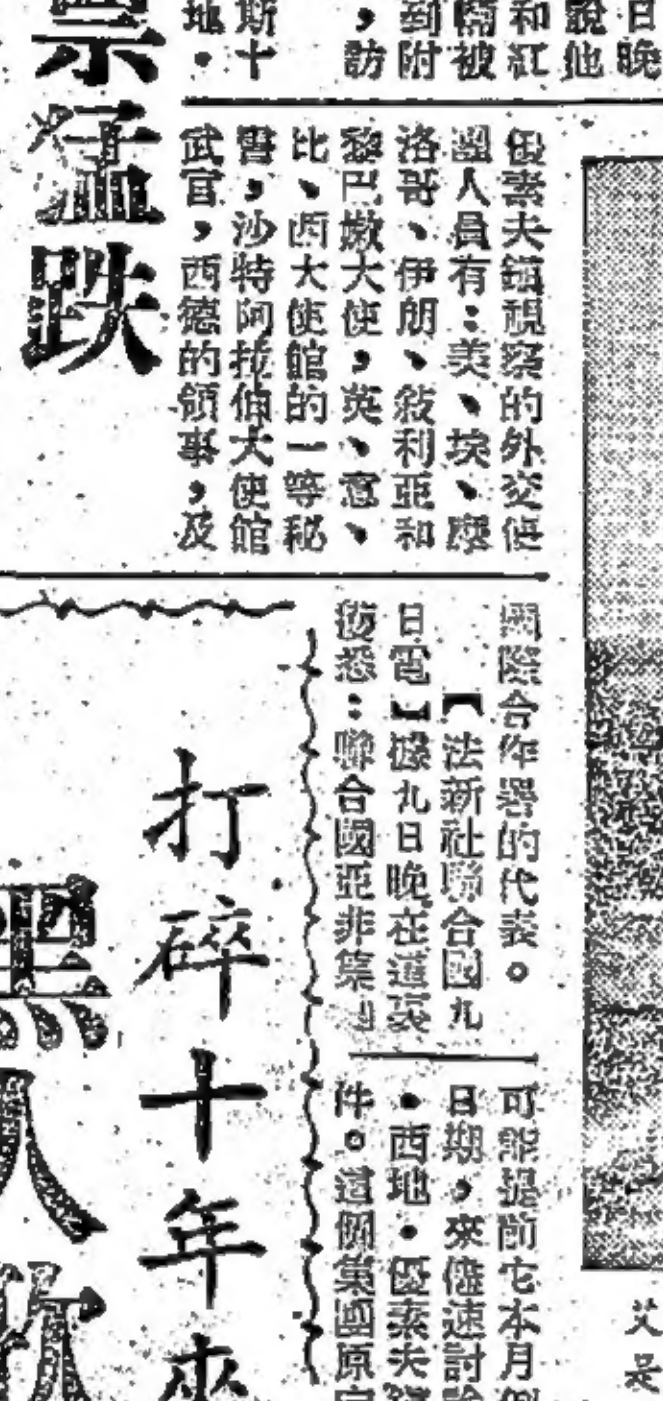 日晚
說他
和紅
被
到附
，訪
斯十
地．
優素夫鎮視察的外交使
團人員有：美、埃、摩
洛哥、伊朗、敍利亞和
黎巴嫩大使，英、意、
比、西大使館的一等秘
書，沙特阿拉伯大使館
武官，西德的領事，及
國際合作署的代表。
【法新社聯合國九
日電】據九日晚在這裏
獲悉：聯合國亞非集團
可能提前它本月例
日期，來催速討論
．西地．優素夫鎮
件。這個集團原定
猛跌
打碎十年來
黑人